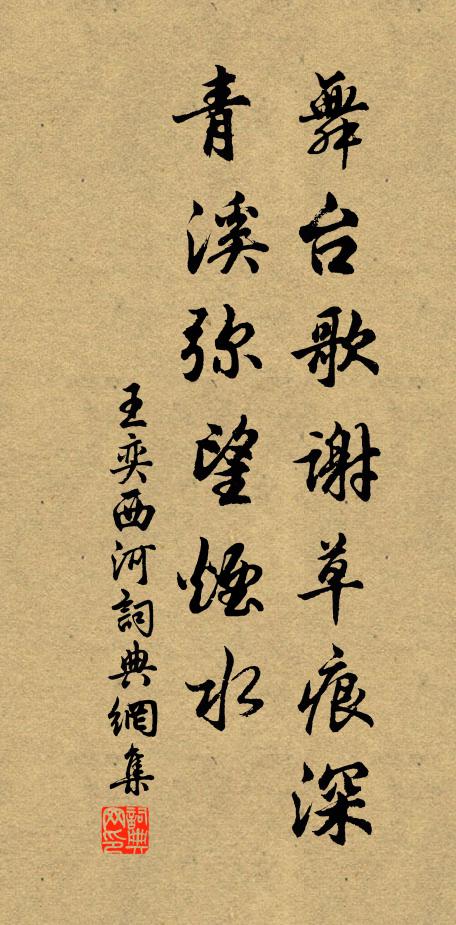 舞台歌谢草痕深
青溪弥望烟水
王奕西河詞典網集
詞典网印